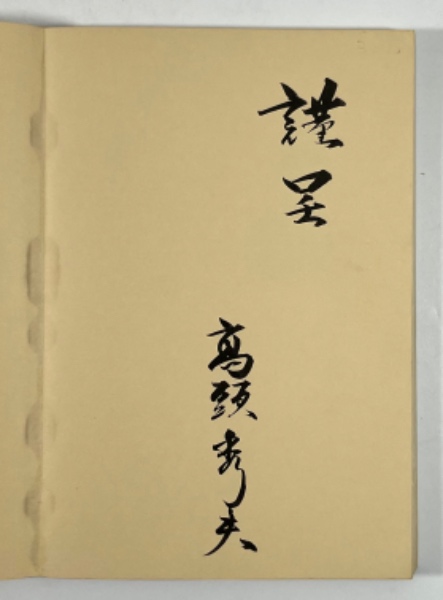 謹呈
高頭秀夫